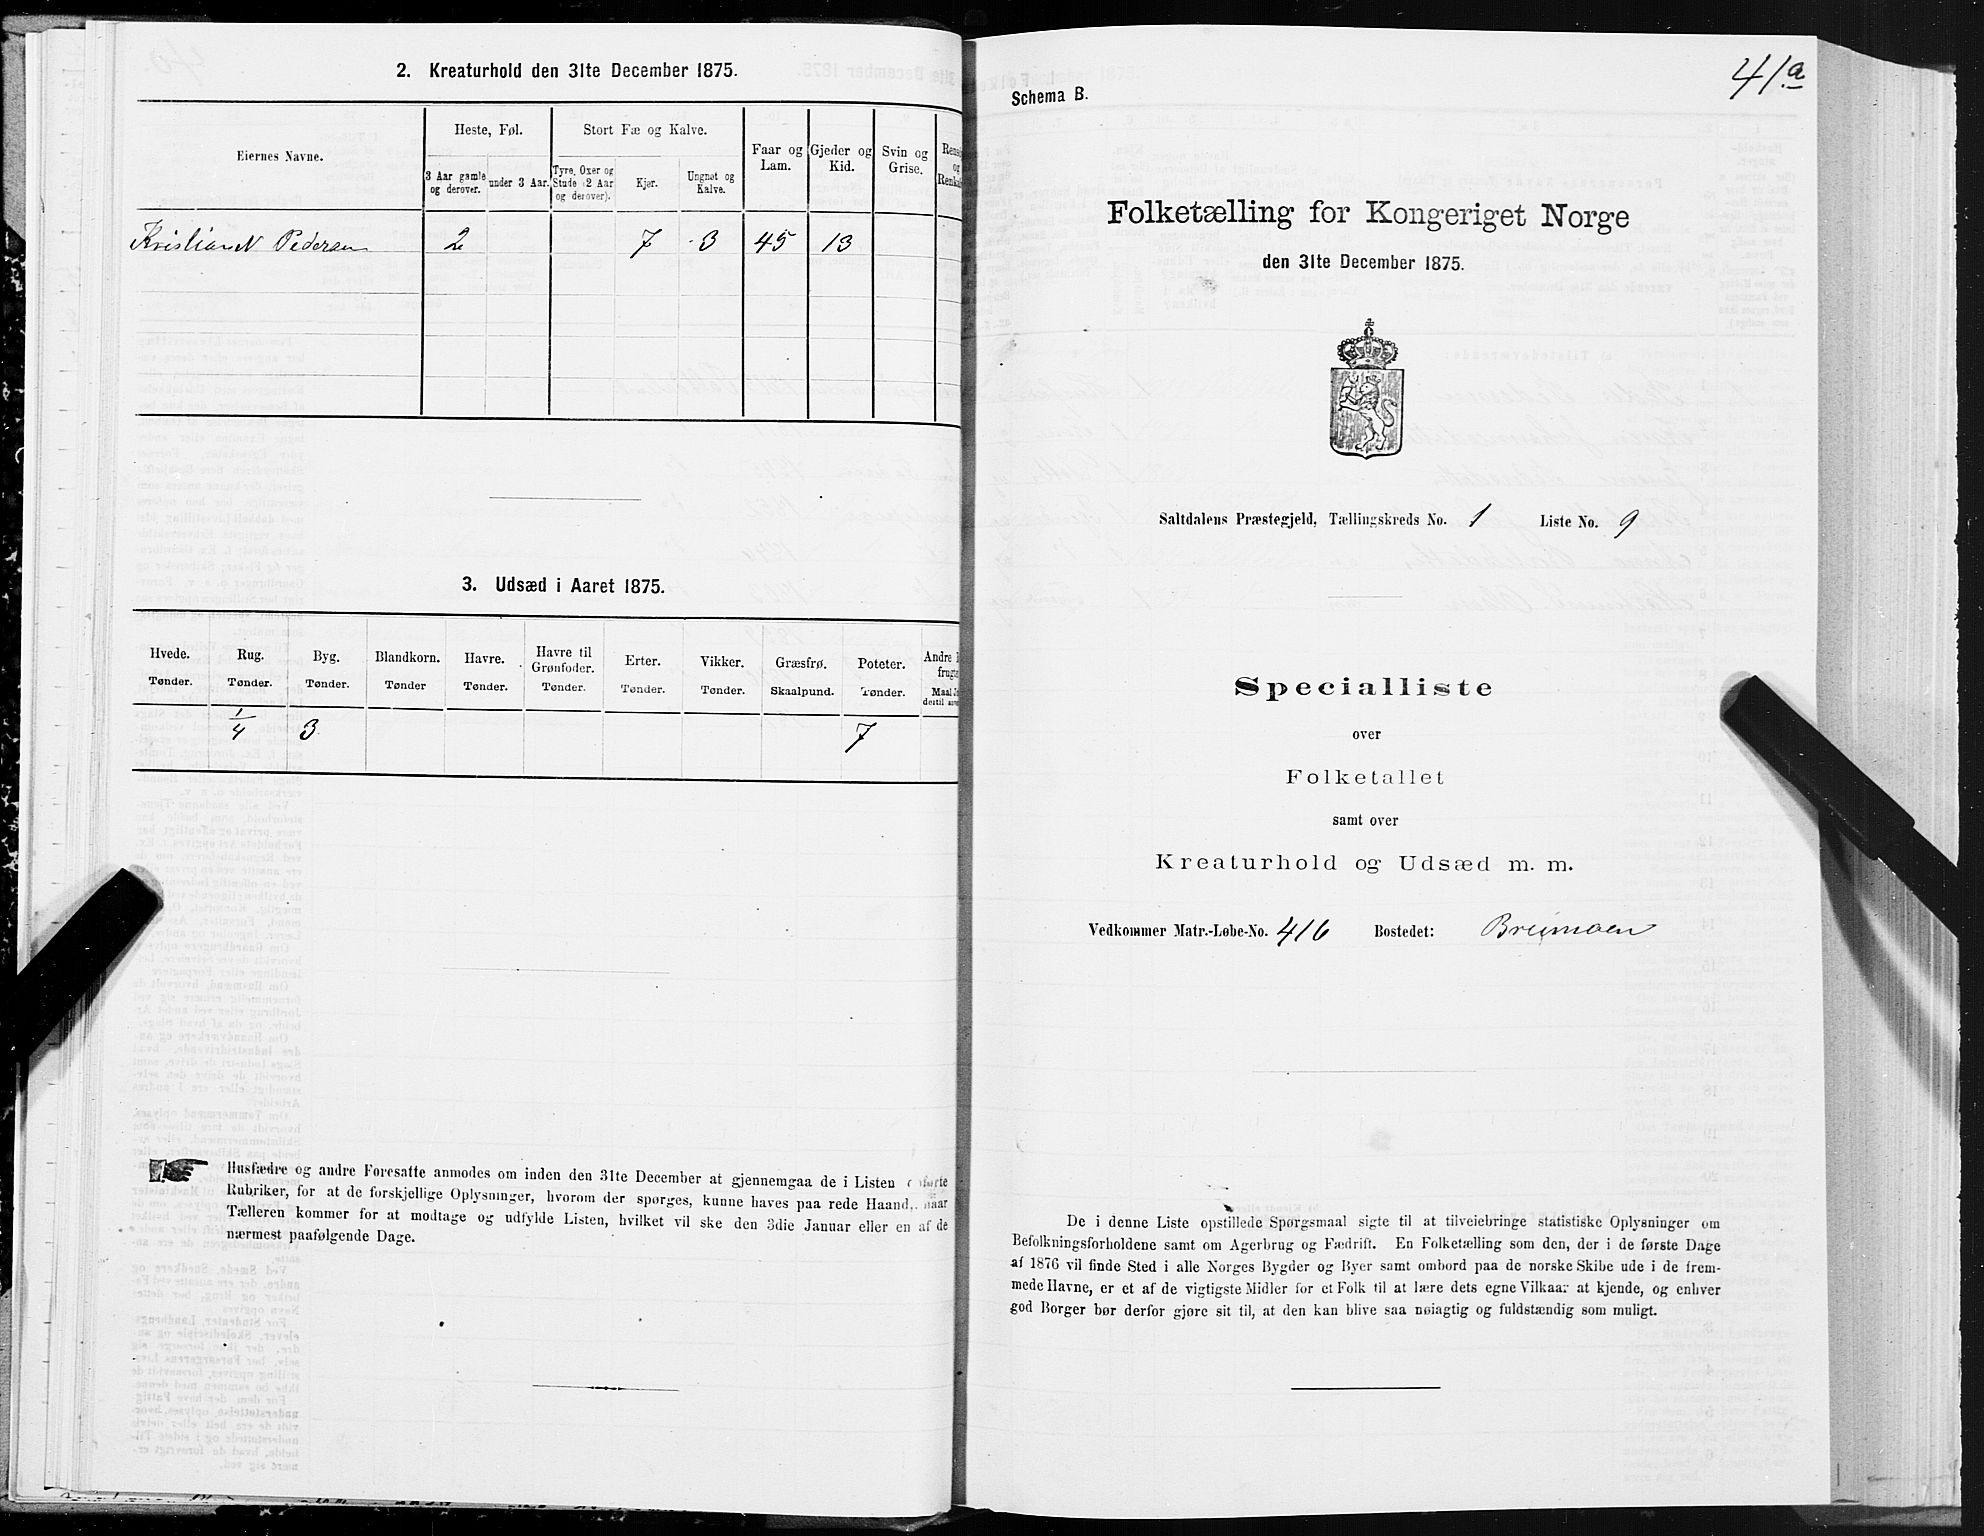 2. Kreaturhold den 31te December 1875.
Eiernes Navne.
Heste, Føl.
Stort Fæ og Kalve.
Faar og Lam.
Gjeder og Kid.
Svin og Grise.
3 Aar gamle og derover.
under 3 Aar.
Tyre, Oxer og Stude (2 Aar og derover).
Kjør.
Ungnøt og Kalve.
Kristian N Pedersen 2 7 3 45 13
3. Udsæd i Aaret 1875.
Hvede. Rug. Byg. Blandkorn. Havre. Havre til Grønfoder. Erter. Vikker. Græsfrø. Poteter.
Tønder. Tønder. Tønder. Tønder Tønder. Tønder. Tønder. Tønder. Skaalpund. Tønder.
1/4 3 7
Husfædre og andre Foresatte anmodes om inden den 31te December at gjennemgaa de i Listen
Rubriker, for at de forskjellige Oplysninger, hvorom der spørges, kunne haves paa rede Haand, naar
Tælleren kommer for at modtage og udfylde Listen, hvilket vil ske den 3die Januar eller en af de
nærmest paafølgende Dage.
41a
Schema B.
Folketælling for Kongeriget Norge
den 31te December 1875.
Saltdalens Præstegjeld, Tællingskreds No. 1 Liste No. 9
Specialliste
over
Folketallet
samt over
Kreaturhold og Udsæd m. m.
Vedkommer Matr.-Løbe-No. 416 Bostedet: Breimoen
De i denne Liste opstillede Spørgsmaal sigte til at tilveiebringe statistiske Oplysninger om
Befolkningsforholdene samt om Agerbrug og Fædrift. En Folketælling som den, der i de første Dage
af 1876 vil finde Sted i alle Norges Bygder og Byer samt ombord paa de norske Skibe ude i de frem-
mede Havne, er et af de vigtigste Midler for et Folk til at lære dets egne Vilkaar at kjende, og enhver
god Borger bør derfor gjøre sit til, at den kan blive saa nøiagtig og fuldstændig som muligt.